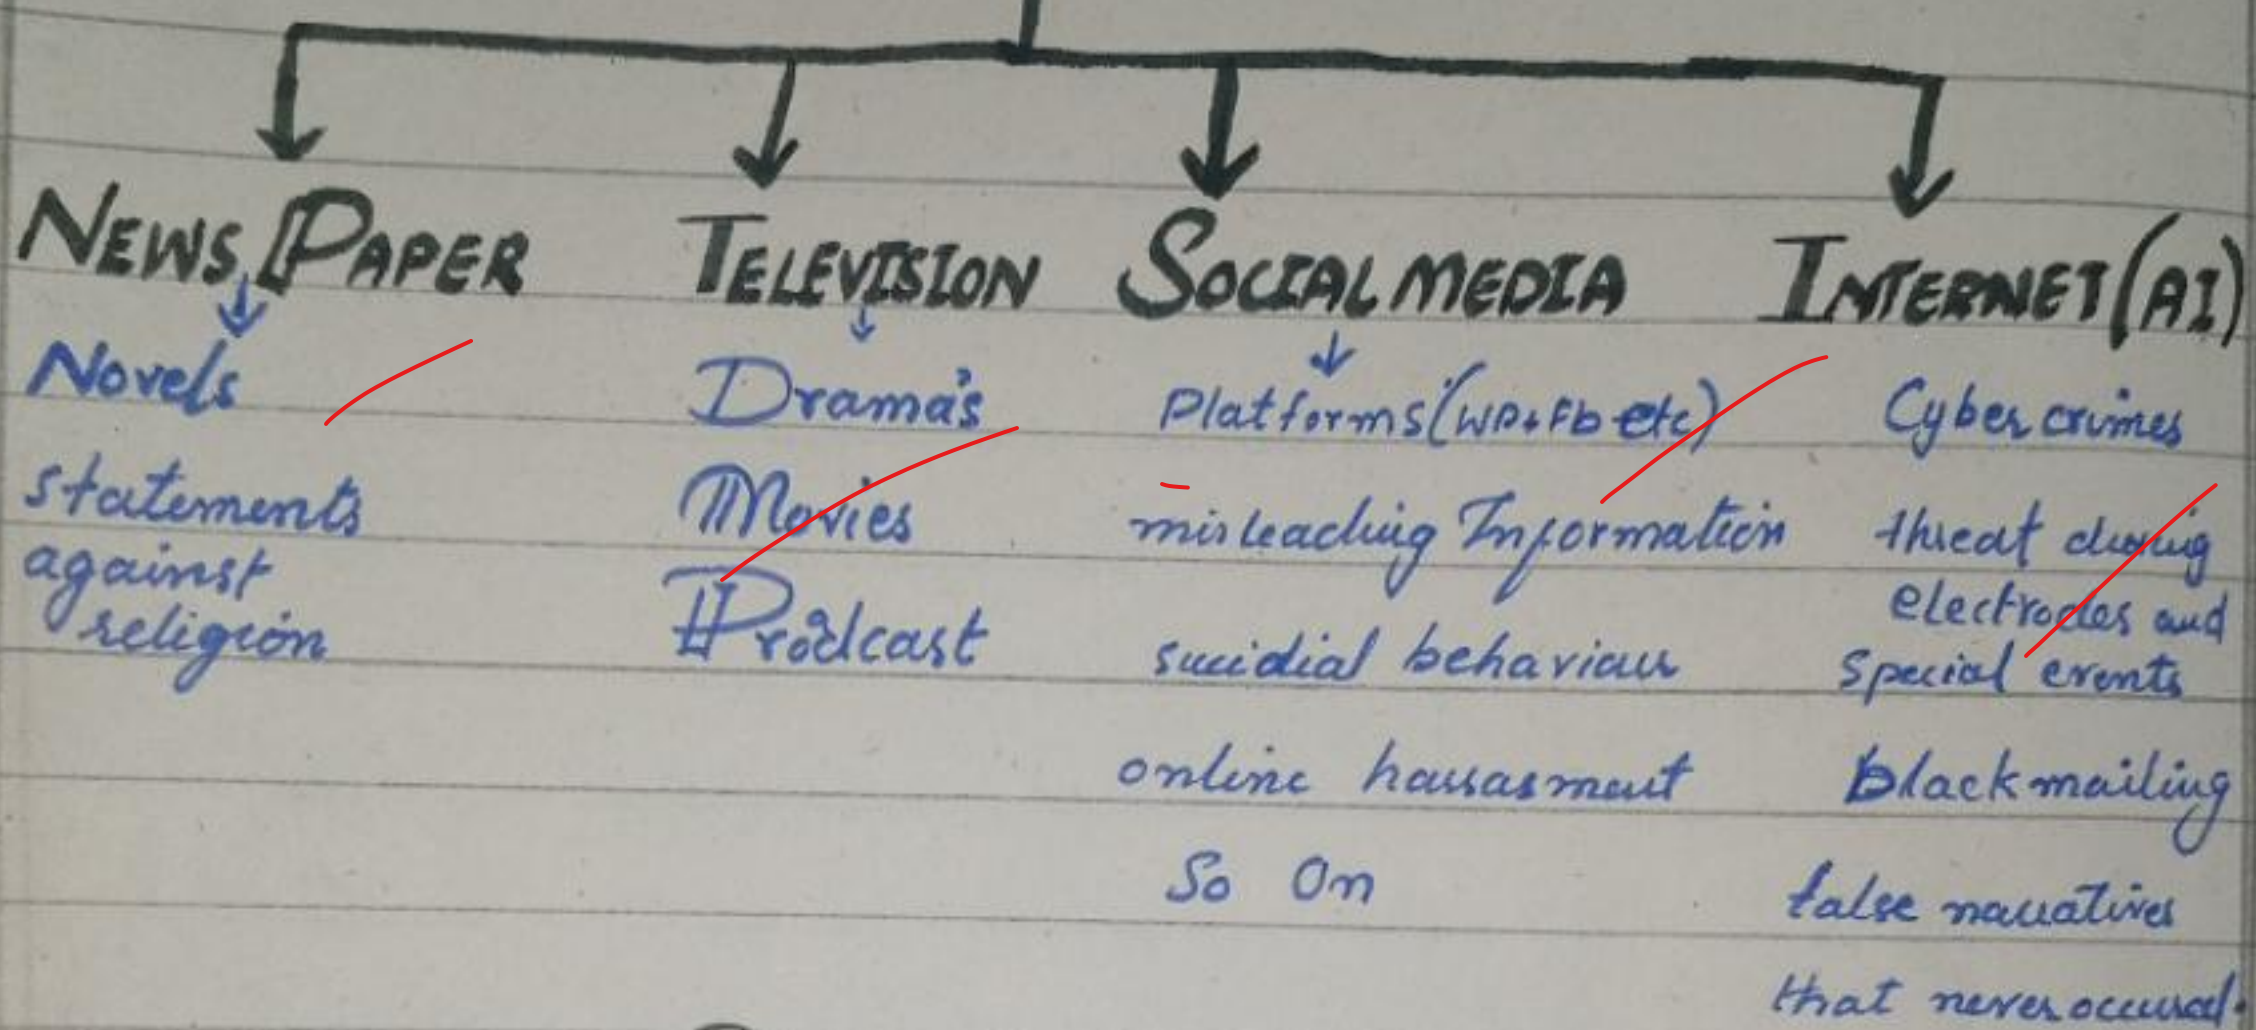 NEWS PAPER
Novels
statements
against
religion
TELEVISION
Drama's
Movies
Prodcast
SOCIAL MEDIA
Platforms (WP+Fb etc)
misleading Information
suicidial behaviour
online harrasment
So On
INTERNET (AI)
Cyber crimes
threat during
electrodes and
special events
Blackmailing
false narratives
that never occured.